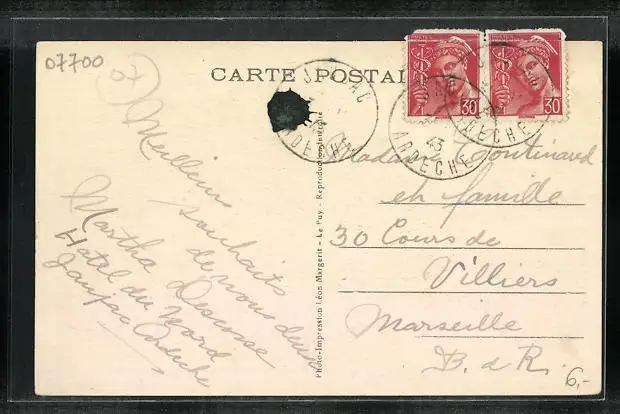 07700
07
CARTE POSTALE
Meilleurs
souhaits
de nous deux
Martha
Hotel du Nord
Jaujac Ardèche
Photo-Impression Léon Margerit - Le Puy - Reproduction Interdite
30
30
ARDECHE
ARDECHE
ARDECHE
Madame
en famille
30 Cours de
Villiers
Marseille
B. d R.
6,-